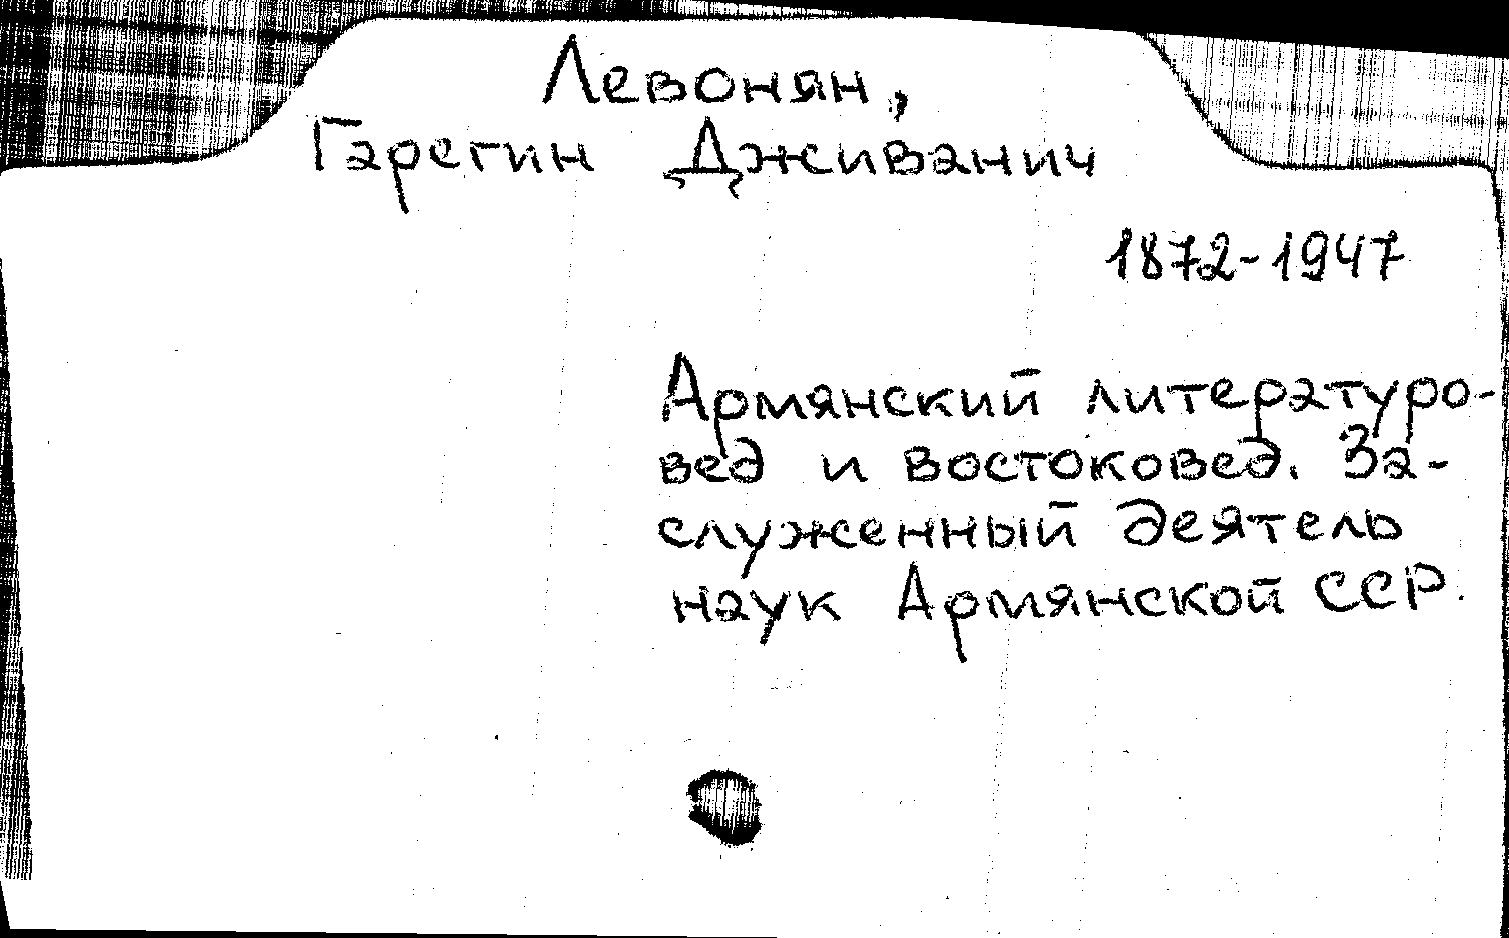 Левонян,
Гарегин Дживанич
1872-1947
Армянский литературо-
вед и востоковед. За-
служенный деятель
наук Армянской ССР.